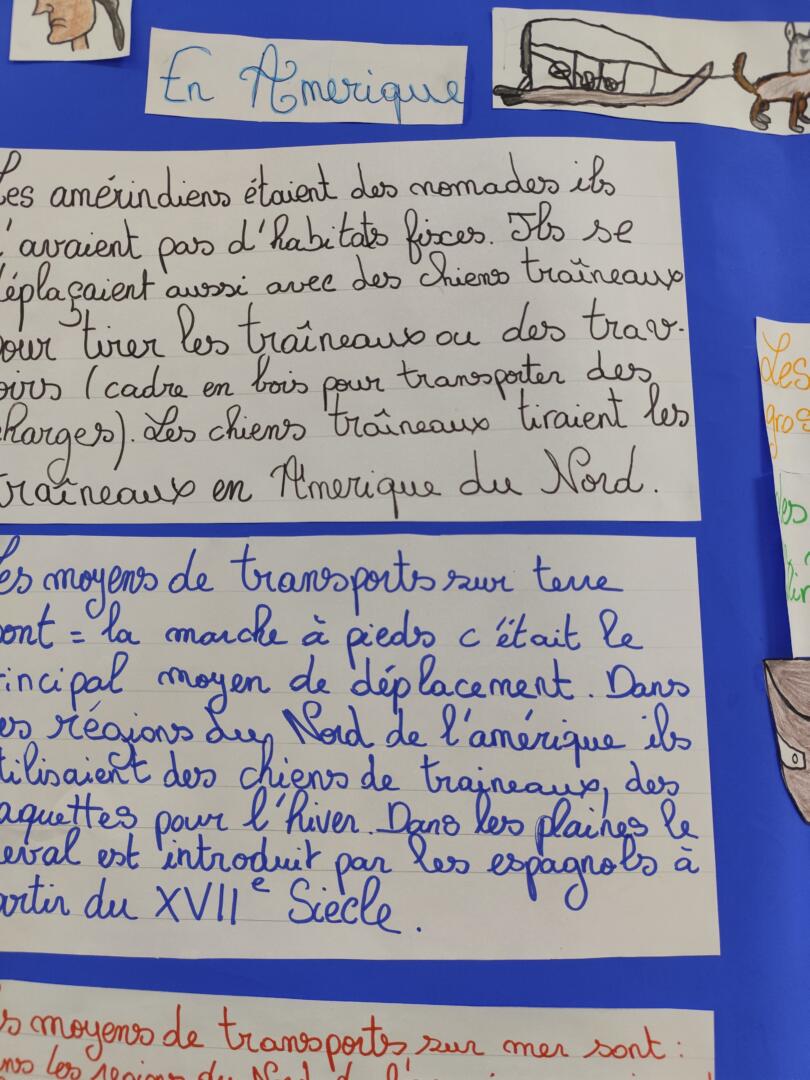 En Amerique
Les amérindiens étaient des nomades ils
'avaient pas d'habitats fisces. Ils se
déplaçaient aussi avec des chiens traîneaux
pour tirer les traîneaux ou des trav-
oirs (cadre en bois pour transporter des
charges). Les chiens traîneaux tiraient les
traîneaux en Amerique du Nord.
Les moyens de transports sur terre
sont = la marche à pieds c'était le
rincipal moyen de déplacement. Dans
es régions du Nord de l'amérique ils
tilisaient des chiens de traineaux, des
aquettes pour l'hiver. Dans les plaines le
eval est introduit par les espagnols à
artir du XVII e Siècle.
s moyens de transports sur mer sont :
ans les régions du Nord de l'
Les
gros
les